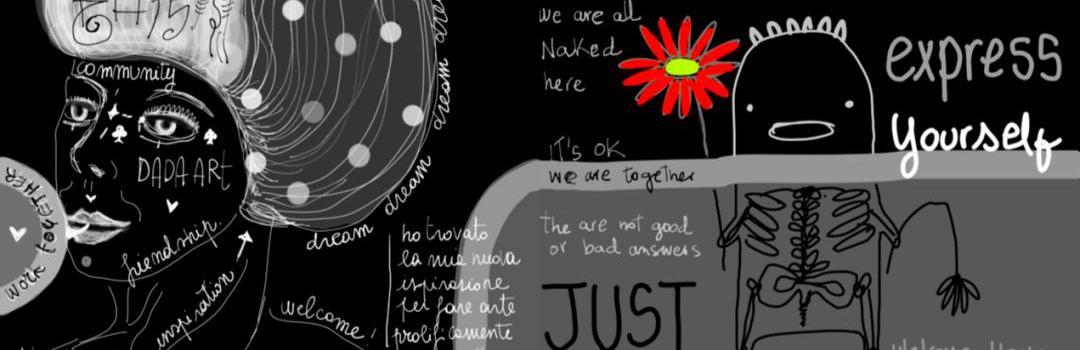 community
DADA ART
friendship
inspiration
welcome
WORK TOGETHER
dream
dream
dream
ho trovato
la mia nuova
ispirazione
per fare arte
prolificamente
we are all
Naked
here
IT's OK
we are together
the are not good
or bad answers
JUST
express
yourself